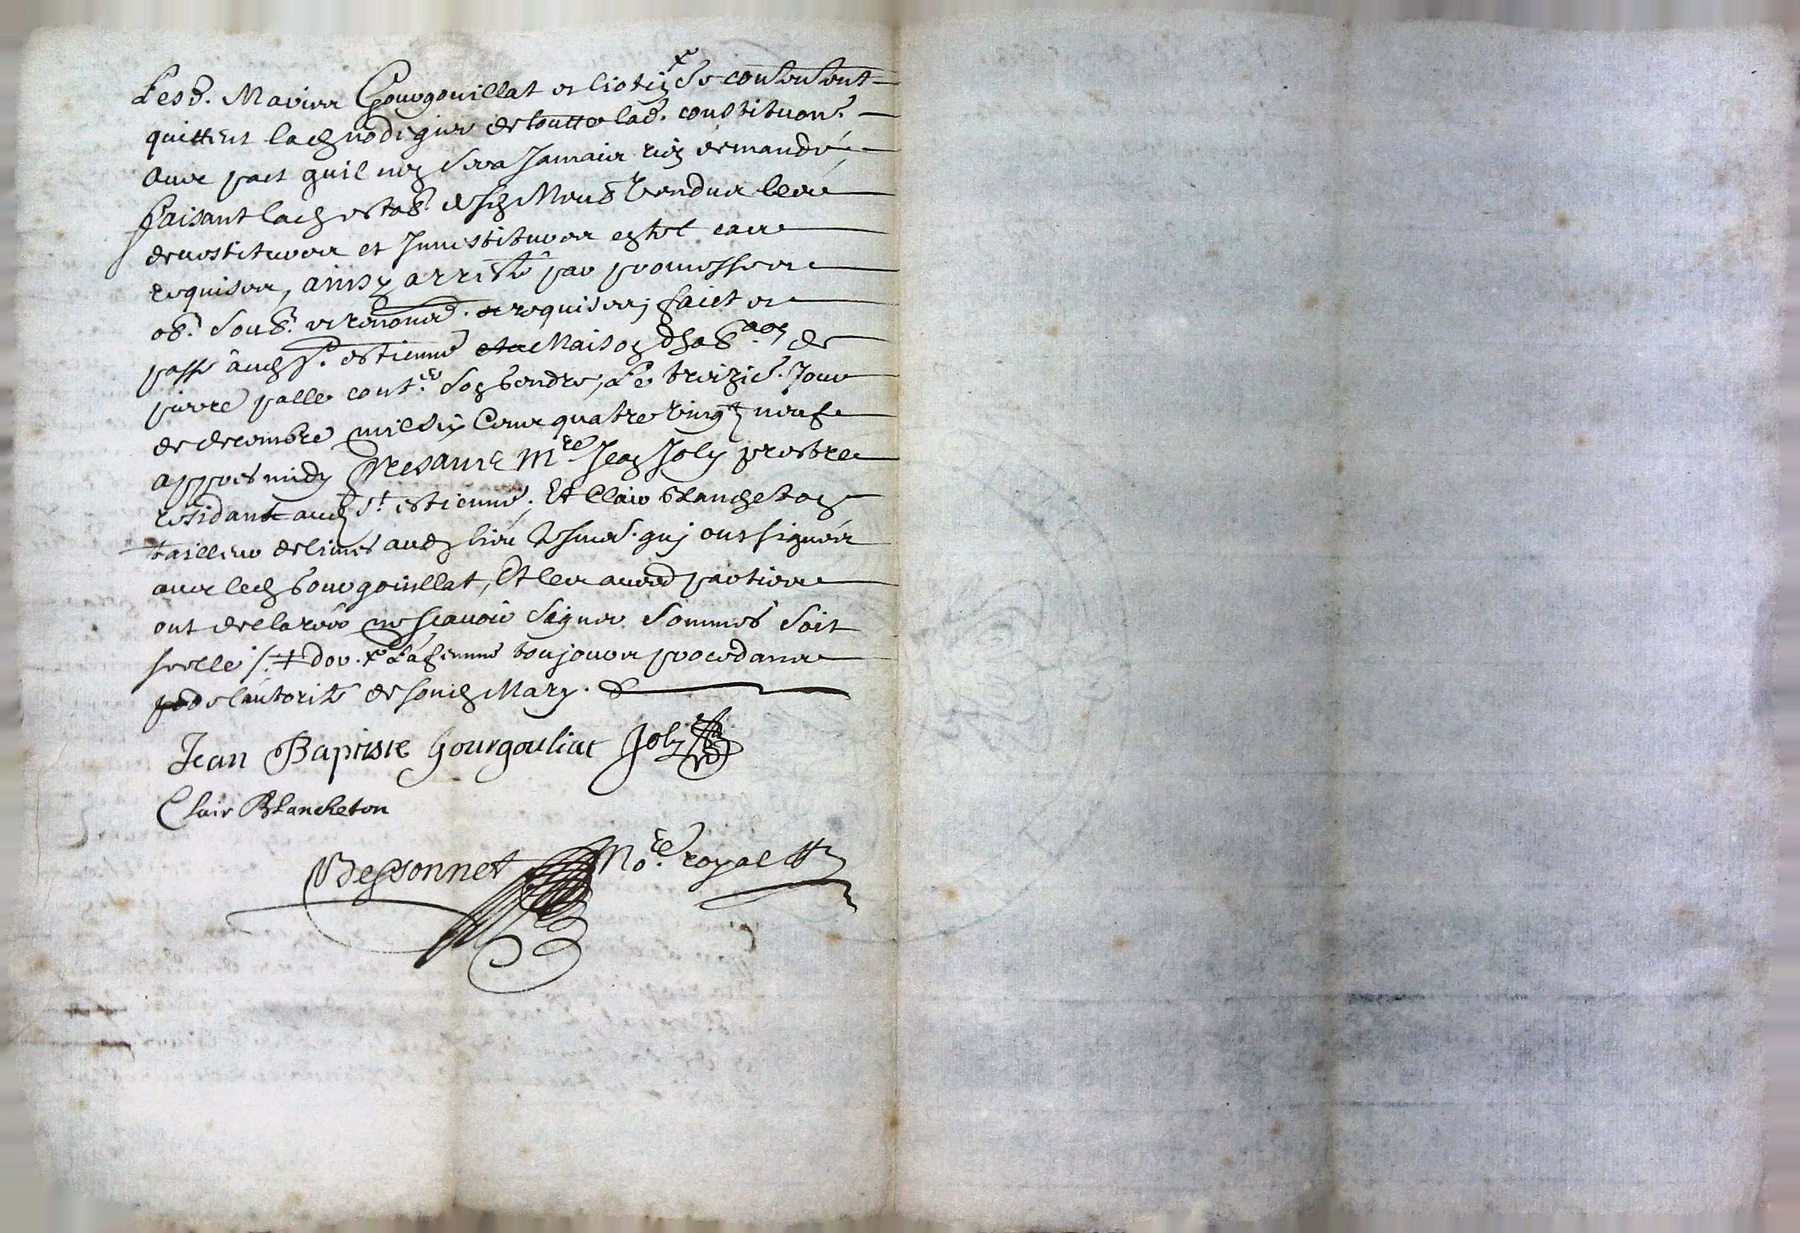 Lesd. Mariez Gourgouillat et Liotin x se contentent
quittent lad nodigier de toutte lad. constituon.
avec pact quil nen sera Jamais rien demandé,
faisant
devestituon et Investituon en tel cas
requises, ainsy arresté par promesses
ob. soub. et renond. et requises, faict et
passé aud St. estienne Maison dhab.aon de
pierre palle cont.er son gendre, Le treizie. Jour
de decembre mil six Cens quatre vingt neuf
appres midy Presantz Mre Jean Joly prestre
residant aud St. estienne, Et Clair Blancheton
tailleur de limes aud lieu tesmoi. quj ont signéz
avec led Gourgouillat, Et les autres parties
ont declaré ne scavoir signer sommés soit
scellé /. ‡ dor. x toujours procedant
de lautorité de sond Mary.
Jean Baptiste Gourgouliat Joly
Clair Blancheton
Bessonnet No.re royal